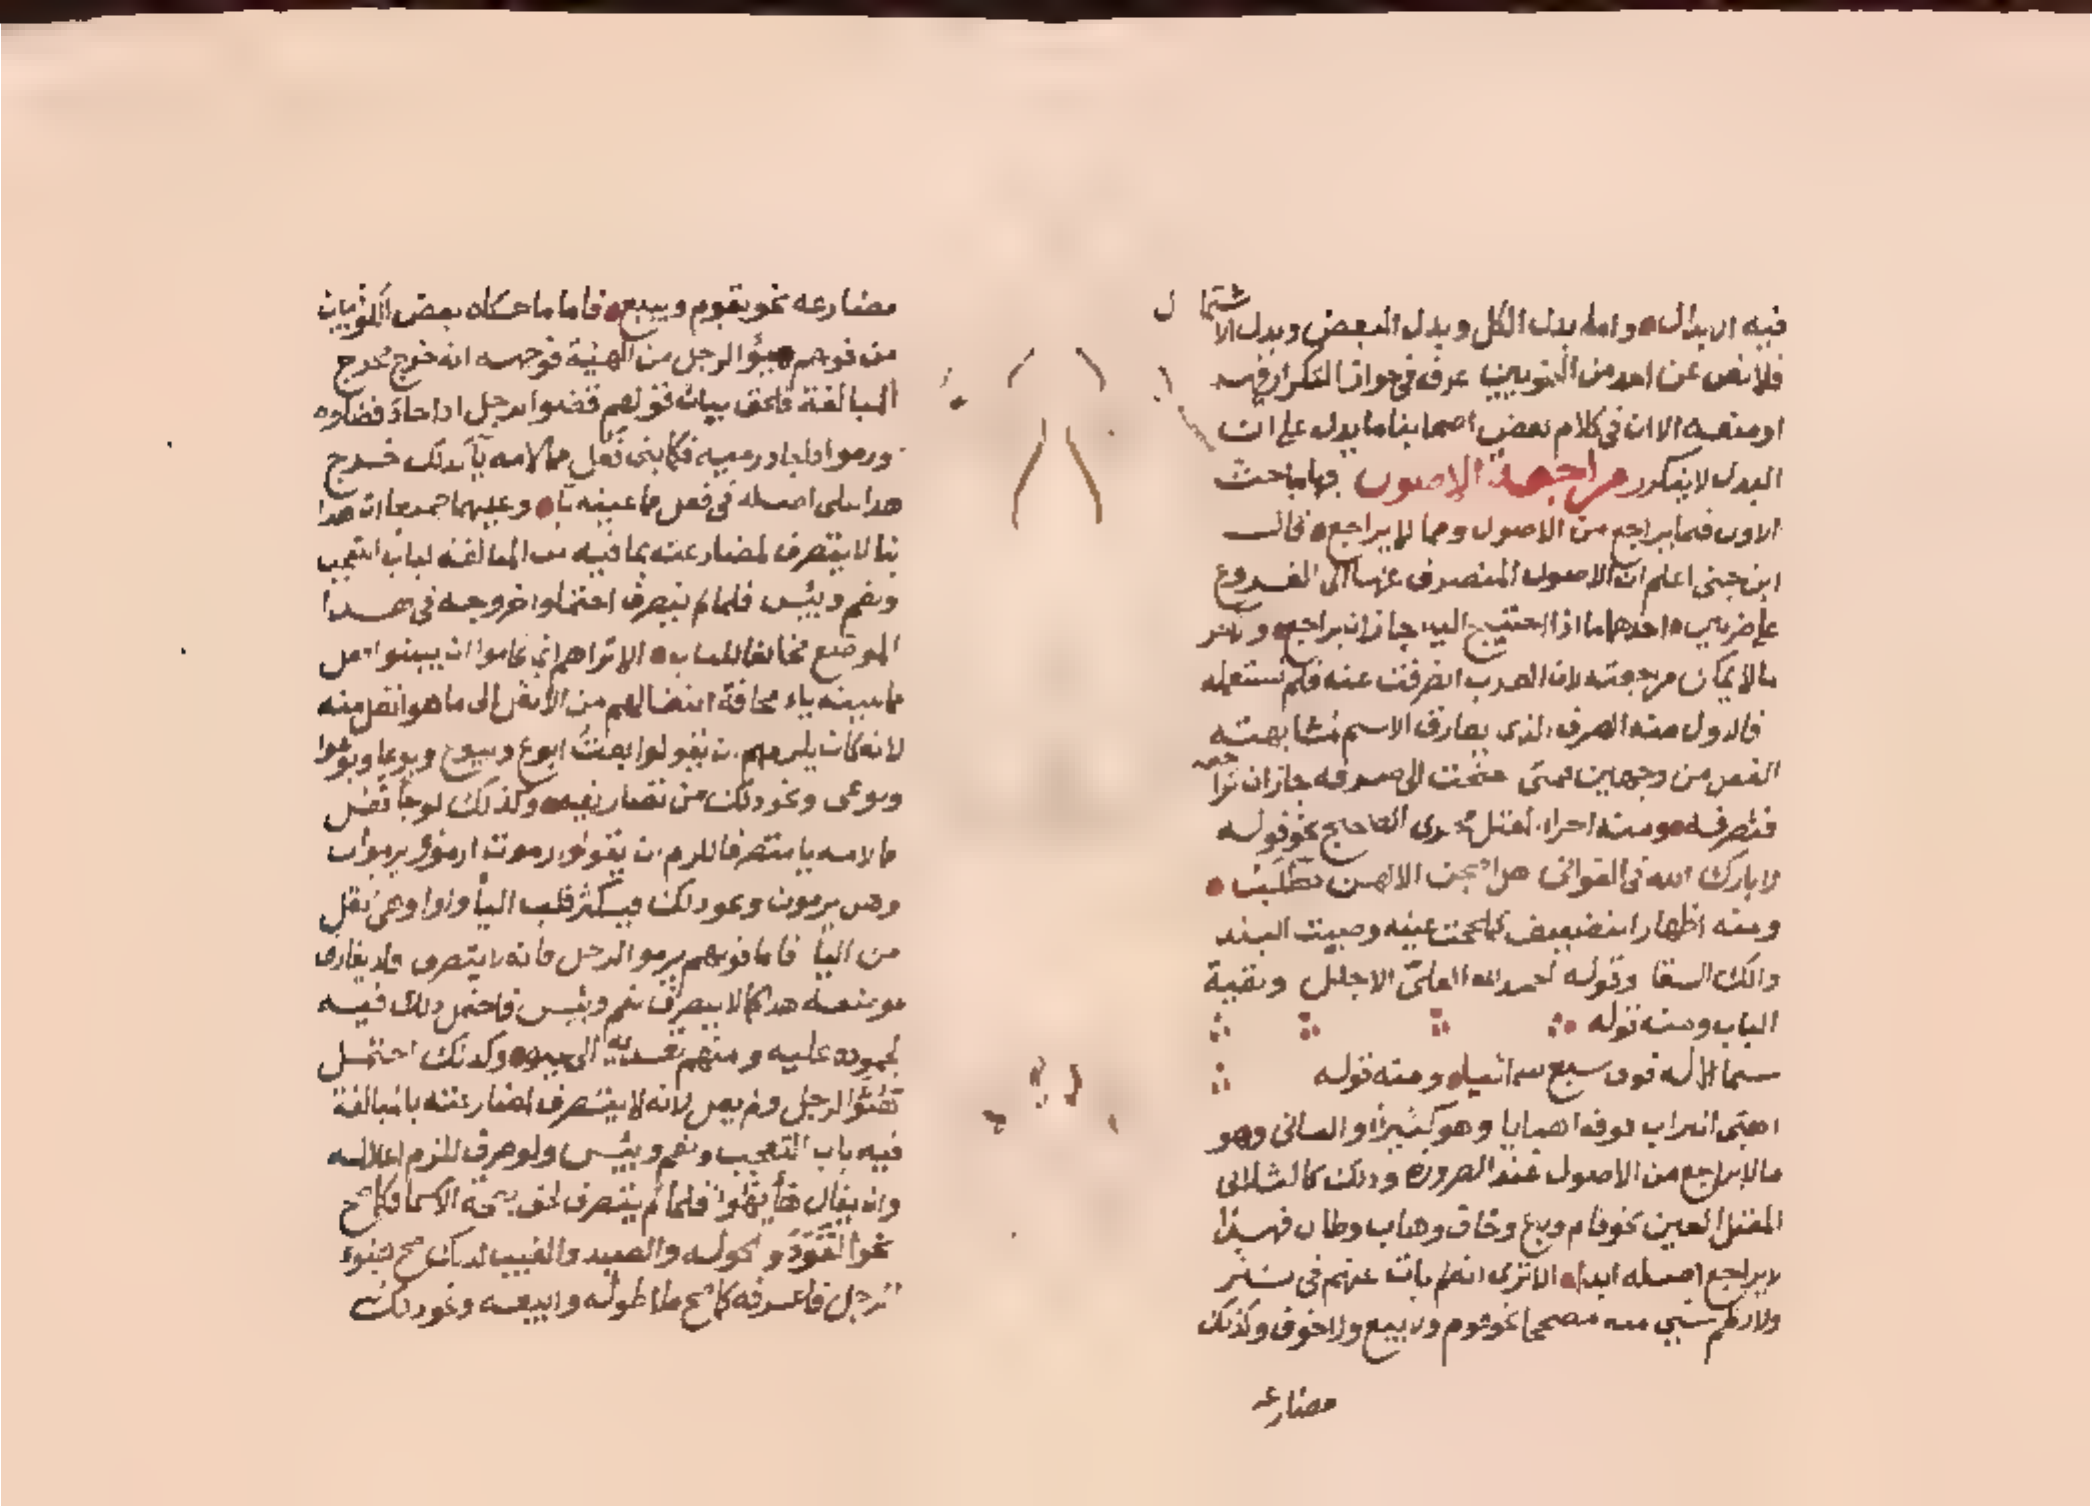 فيه الابدال وامابدل الكل وبدل البعض وبدل الاشتمال
فلا نص عن احد من النحويين عرف في جواز التكرار فيه
او منعه الا ان في كلام بعض اصحابنا ما يدل على ان
البدل لا يتكرر مراجعة الاصول فيها مباحث
الاول فيما يراجع من الاصول ومما لا يراجع قال
ابن جني اعلم ان الاصول المنصرف عنها الى الفروع
على ضربين احدهما ما اذا احتيج اليه جاز ان يراجع و
ما لا يمكن مراجعته لان العرب انصرفت عنه فلم تستعمله
فالاول منه الصرف الذي يفارق الاسم لمشابهته
الفعل من وجهين فمتى احتجت الى صرفه جاز ان تراجعه
فتصرفه ومنه اجراء المعتل مجرى الصحيح نحو قوله
لا بارك الله في الغواني هل يصبحن الا لهن مطلب
ومنه اظهار التضعيف كلححت عينه وضببت البلد
والك السقا وقوله الحمد لله العلي الاجلل وبقية
الباب ومنه قوله
سماء الاله فوق سبع سمائيا ومنه قوله
اهبى التراب فوقه اهبايا وهو كثير والثاني وهو
ما لا يراجع من الاصول عند الضرورة وذلك كالثلاثي
المعتل العين نحو قام وباع وخاف وهاب وطال فهذا
لا يراجع اصله ابدا الا ترى انه لم يات عنهم في نثر
ولا نظم شيء منه مصححا نحو قوم ولا بيع ولا خوف وكذلك
مضارعه
مضارعه نحو يقوم ويبيع فاما ما حكاه بعض الكوفيين
من قولهم هيؤ الرجل من الهيئة فوجهه انه خرج مخرج
المبالغة فلحق بباب قولهم قضو الرجل اذا جاد قضاؤه
ورمو اذا جاد رميه فكما بنى فعل مما لامه يآ كذلك خرج
هذا على اصله في فعل مما عينه يآ وعلتهما جميعا ان هذا
بنا لا يتصرف لمضارعته بما فيه من المبالغة لباب التعجب
ونعم وبئس فلما لم يتصرف احتملوا خروجه في هذا
الموضع مخالفا للباب الا تراهم انما تحاموا ان يبنوا فعل
مما عينه ياء مخافة انتقالهم من الاثقل الى ما هو اثقل منه
لانه كان يلزمهم ان يقولوا بعت ابوع وبيوع وبوعا وبوعوا
وبوعي ونحو ذلك من تصاريفه وكذلك لو جا فعل
مما لامه يا متصرفا للزم ان يقولوا رموت ارمو ويرموان
وهن يرمون ونحو ذلك فيكثر قلب اليا واوا وهي اثقل
من اليا فاما قولهم لرمو الرجل فانه لا يتصرف ولا يفارق
موضعه هذا كما لا يتصرف نعم وبئس فاحتمل ذلك فيه
لجموده عليه ومنهم تعديه الى غيره وكذلك احتمل
هيؤ الرجل ولم يعل لانه لا يتصرف لمضارعته بالمبالغة
فيه باب التعجب ونعم وبئس ولو صرف للزم اعلاله
وان يقال هآ يهوء فلما لم يتصرف لحق بصحة الاسما فكما صح
نحو القود والحوكة والصيد والغيب كذلك صح هيؤ
الرجل فاعرفه كما صح ما اطوله وابيعه ونحو ذلك